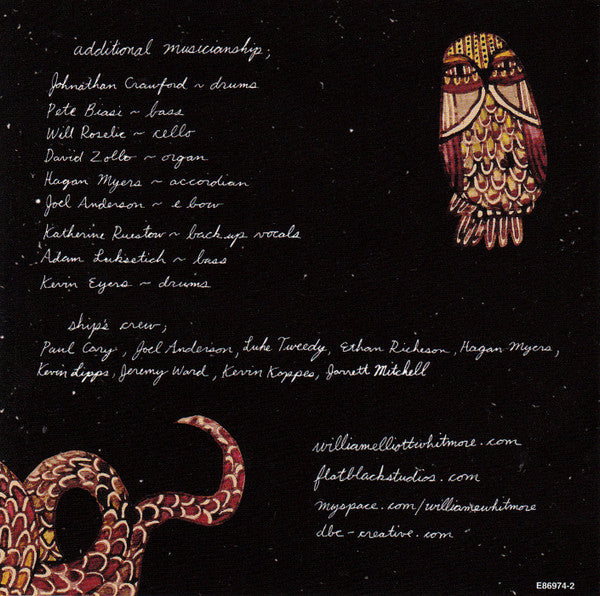 additional musicianship;
Johnathan Crawford ~ drums
Pete Biasi ~ bass
Will Roselie ~ cello
David Zollo ~ organ
Hagan Myers ~ accordian
Joel Anderson ~ e bow
Katherine Ruestow ~ back up vocals
Adam Luksetich ~ bass
Kevin Eyers ~ drums
ship's crew;
Paul Cary, Joel Anderson, Luke Tweedy, Ethan Richeson, Hagan Myers,
Kevin Lipps, Jeremy Ward, Kevin Koppes, Jarrett Mitchell
williamelliottwhitmore.com
flatblackstudios.com
myspace.com/williamewhitmore
dbc-creative.com
E86974-2